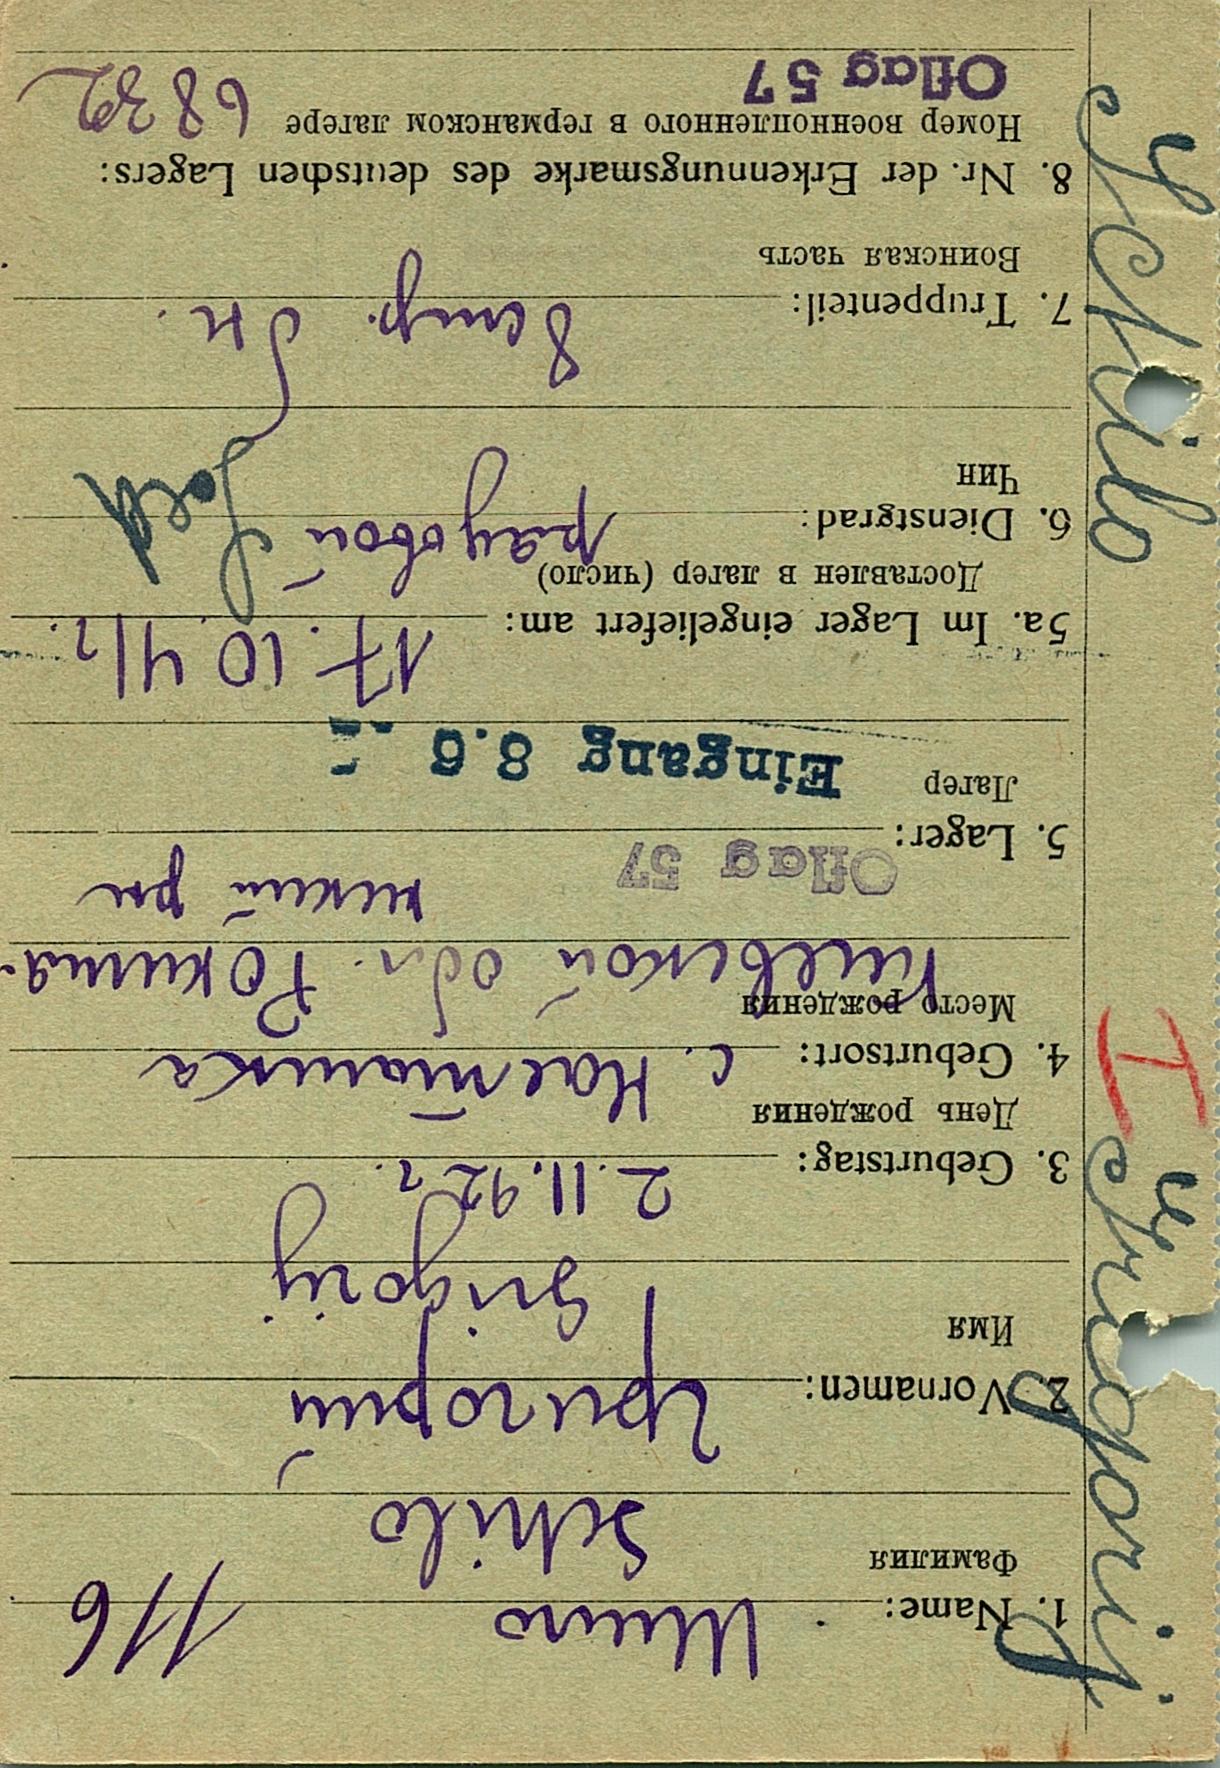 116
1. Name: Шило
Фамилия
Schilo
2. Vornamen: Григорий
Имя
Grigorij
3. Geburtstag: 2.11.92 г.
День рождения
4. Geburtsort: с.
Место рождения
Киевской обл.
Oflag 57
5. Lager:
Лагер
Eingang 8.6
5a. Im Lager eingeliefert am: 17.10.41 г.
Доставлен в лагер (число)
6. Dienstgrad: рядовой Sold
Чин
7. Truppenteil:
Воинская часть
8. Nr. der Erkennungsmarke des deutschen Lagers:
Номер военнопленного в германском лагере
Oflag 57
Schilo
I
Gridorij